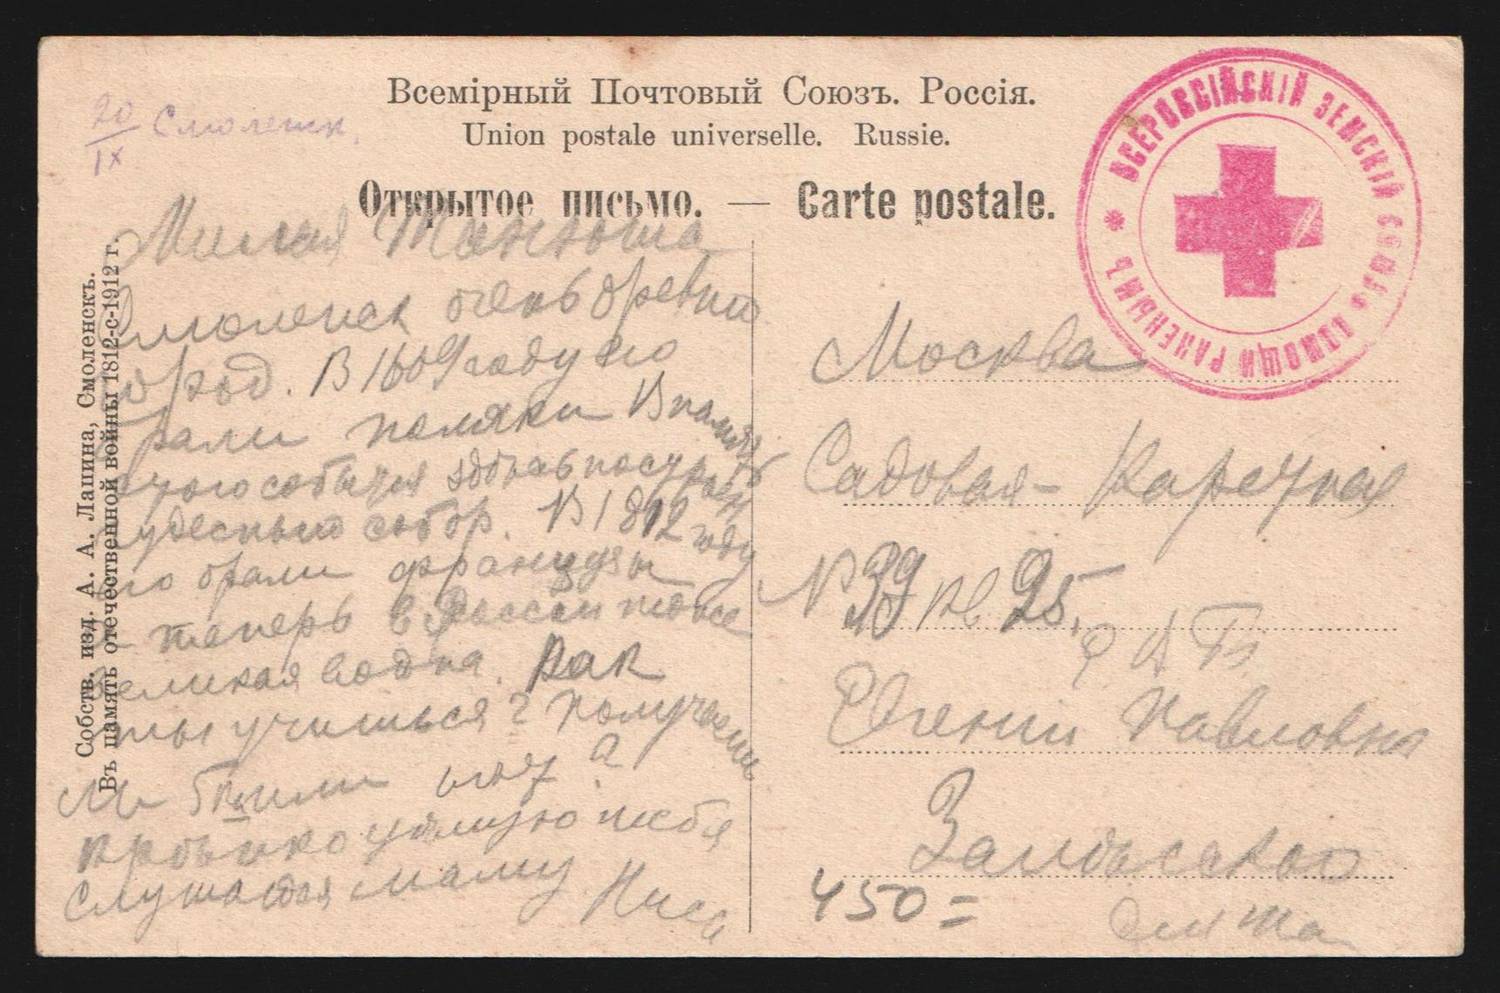 Всемірный Почтовый Союзъ. Россія.
Union postale universelle. Russie.
Открытое письмо. — Carte postale.
ВСЕРОССІЙСКІЙ ЗЕМСКІЙ СОЮЗЪ ПОМОЩИ РАНЕНЫМЪ *
20/IX Смоленск.
Собств. изд. А. А. Лапина, Смоленскъ.
Въ память отечественной войны 1812-с-1912 г.
Милая Танюша
Смоленск очень древний
город. В 1609 году его
брали поляки В память
этого события здесь построен
чудесный собор. В 1812 году
его брали французы
а теперь в России тоже
великая война. Как
ты учишься? Получаешь
ли
крепко целую тебя
слушайся маму
Москва
Садовая-Каретная
№ 39 кв 25.
Евгении Павловне
450=